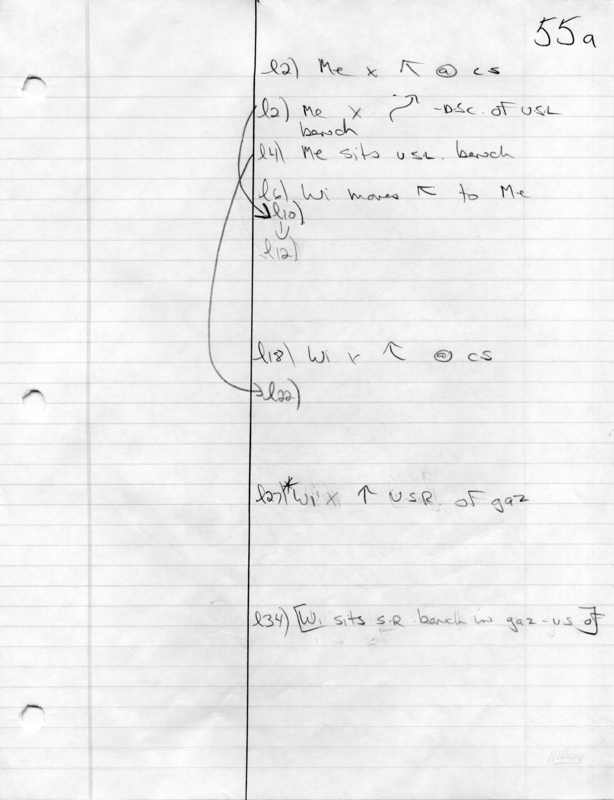 55a
l2) Me x ↖ @ cs
l2) Me x ↗ -DSC. of USL
bench
l4) Me sits USL. bench
l6) Wi moves ↖ to Me
l10)
↓
l12)
l18) Wi x ↖ @ cs
l22)
l27)* Wi x ↑ U.S.R. of gaz
l34) [Wi sits S.R. bench in gaz-US of]
Hilroy